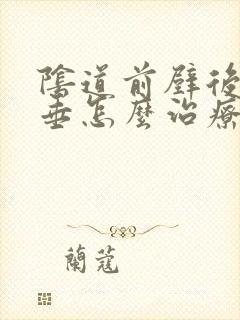 陰道前壁後
垂怎麼治療
蘭蔻